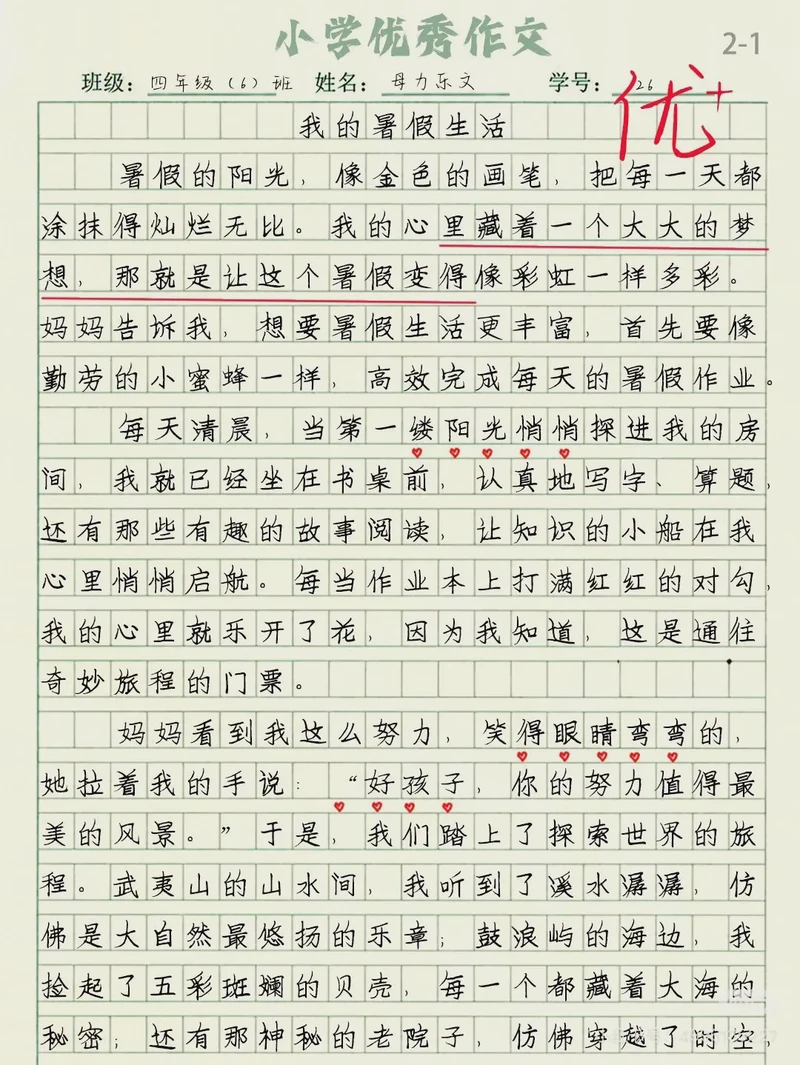 小学优秀作文
2-1
班级：四年级（6）班 姓名：母力乐文 学号：26
优+
我的暑假生活
暑假的阳光，像金色的画笔，把每一天都
涂抹得灿烂无比。我的心里藏着一个大大的梦
想，那就是让这个暑假变得像彩虹一样多彩。
妈妈告诉我，想要暑假生活更丰富，首先要像
勤劳的小蜜蜂一样，高效完成每天的暑假作业。
每天清晨，当第一缕阳光悄悄探进我的房
间，我就已经坐在书桌前，认真地写字、算题，
还有那些有趣的故事阅读，让知识的小船在我
心里悄悄启航。每当作业本上打满红红的对勾，
我的心里就乐开了花，因为我知道，这是通往
奇妙旅程的门票。
妈妈看到我这么努力，笑得眼睛弯弯的，
她拉着我的手说：“好孩子，你的努力值得最
美的风景。”于是，我们踏上了探索世界的旅
程。武夷山的山水间，我听到了溪水潺潺，仿
佛是大自然最悠扬的乐章；鼓浪屿的海边，我
捡起了五彩斑斓的贝壳，每一个都藏着大海的
秘密；还有那神秘的老院子，仿佛穿越了时空，